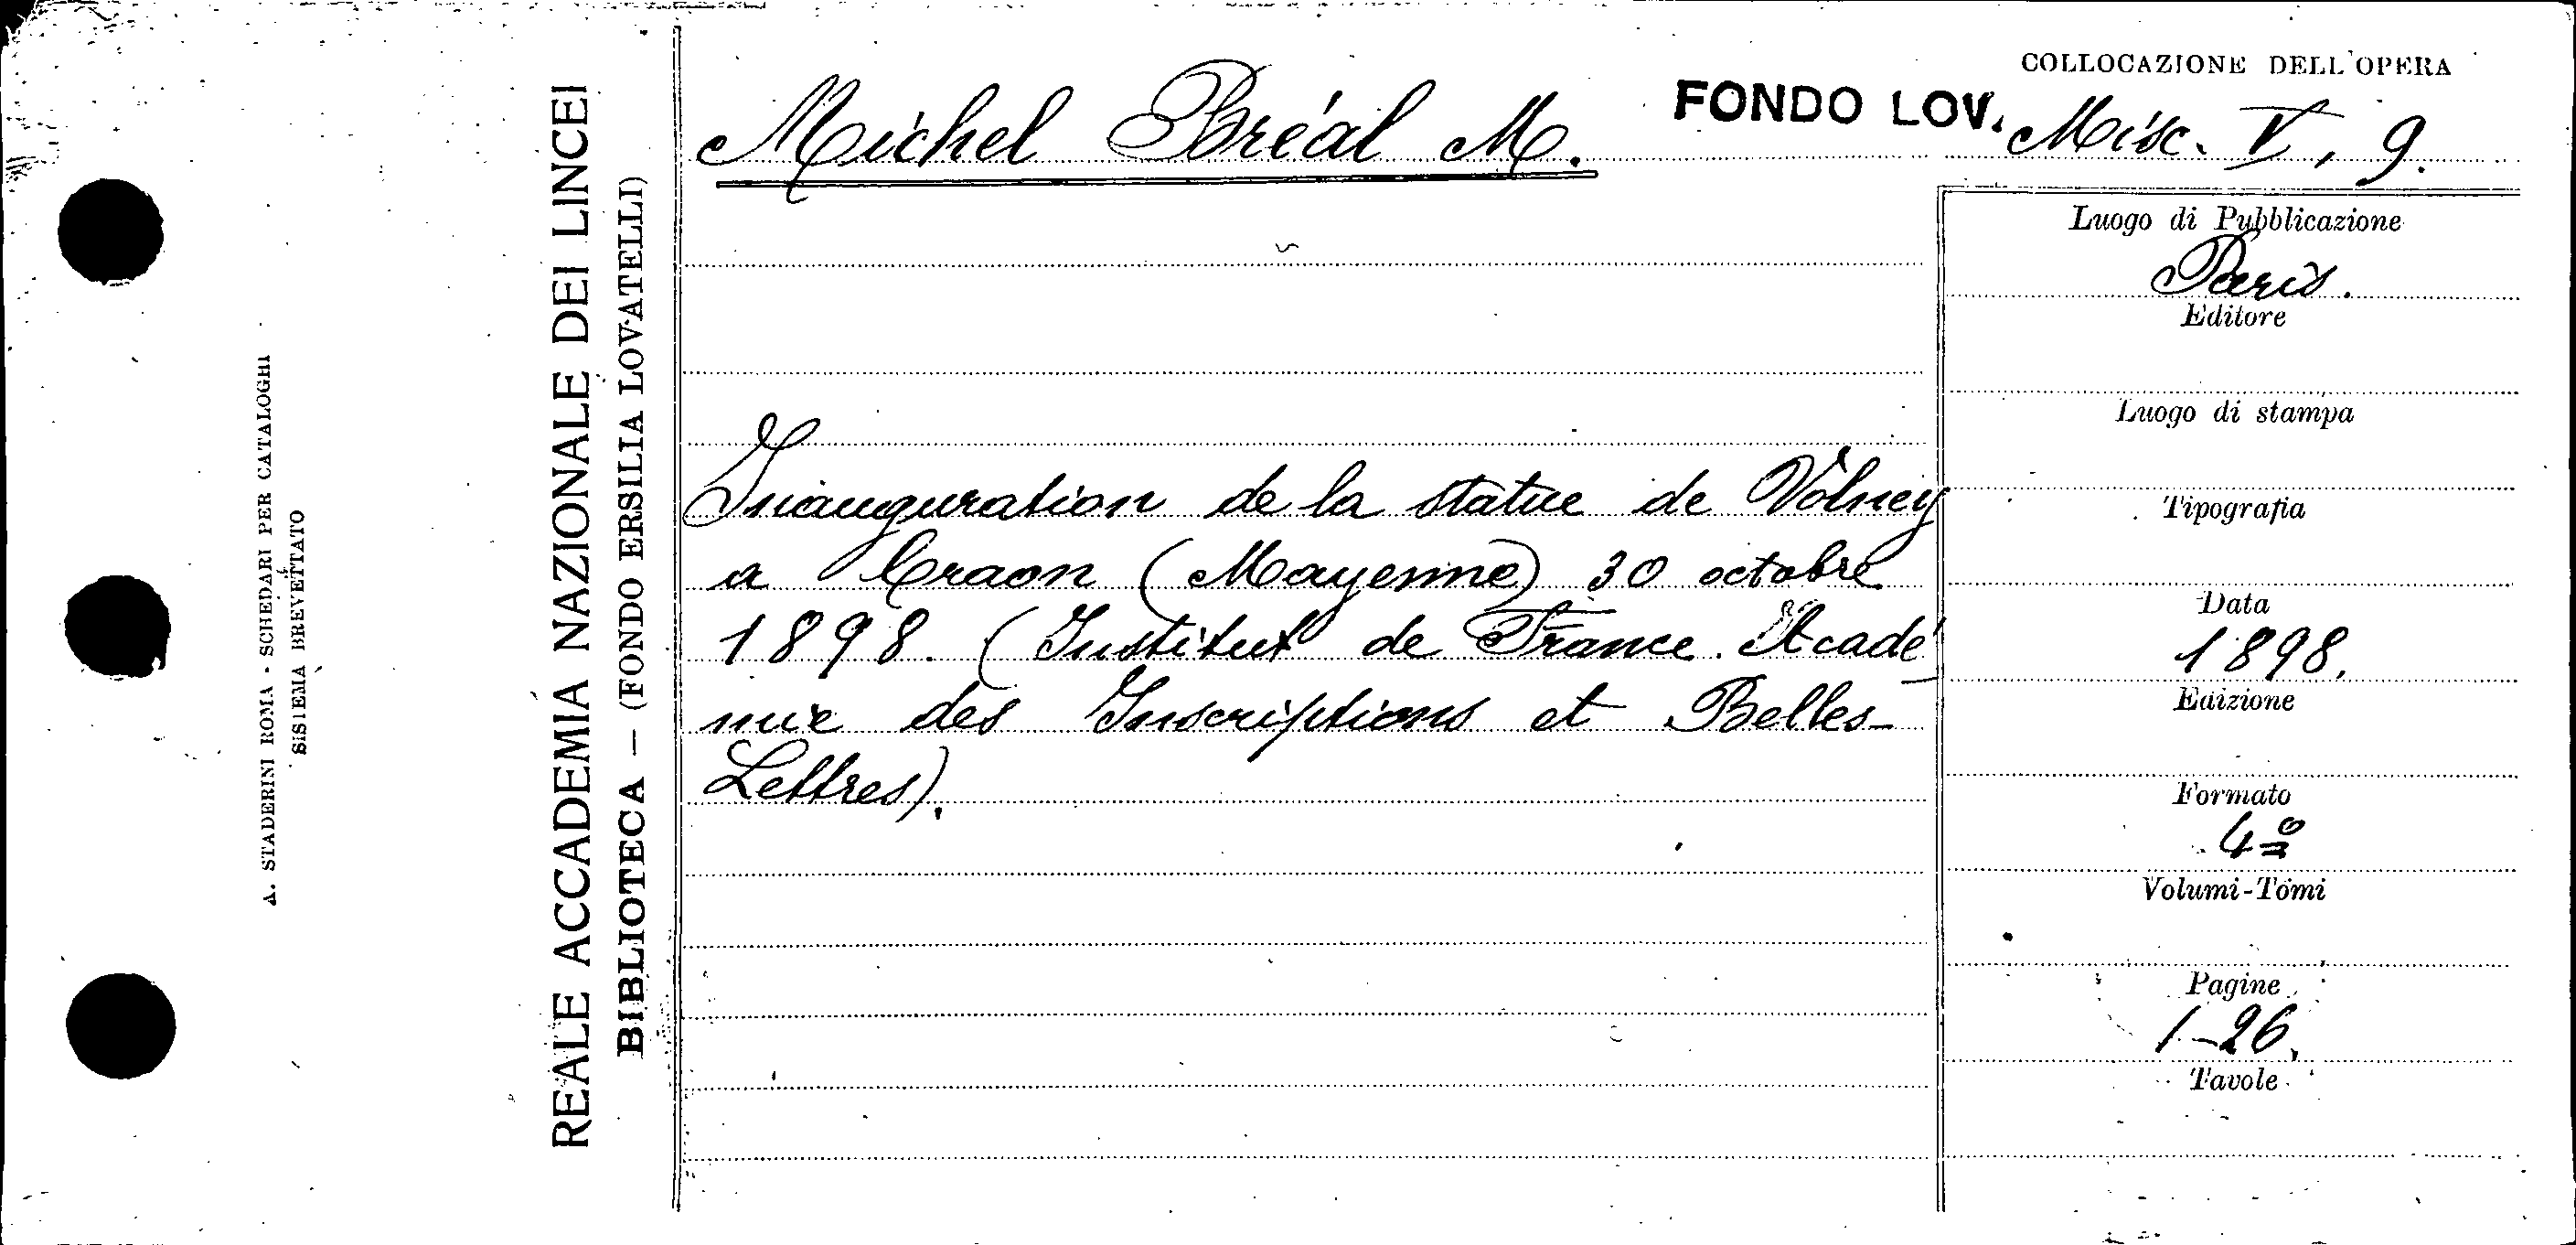 A. STADERINI ROMA - SCHEDARI PER CATALOGHI
SISTEMA BREVETTATO
REALE ACCADEMIA NAZIONALE DEI LINCEI
BIBLIOTECA — (FONDO ERSILIA LOVATELLI)
Michel Bréal M.
FONDO LOV.
COLLOCAZIONE DELL'OPERA
Misc. V, 9.
Inauguration de la statue de Volney
a Craon (Mayenne) 30 octobre
1898. (Institut de France. Acadé
mie des Inscriptions et Belles-
Lettres).
Luogo di Pubblicazione
Paris.
Editore
Luogo di stampa
Tipografia
Data
1898.
Edizione
Formato
4º
Volumi-Tomi
Pagine
1-26.
Tavole